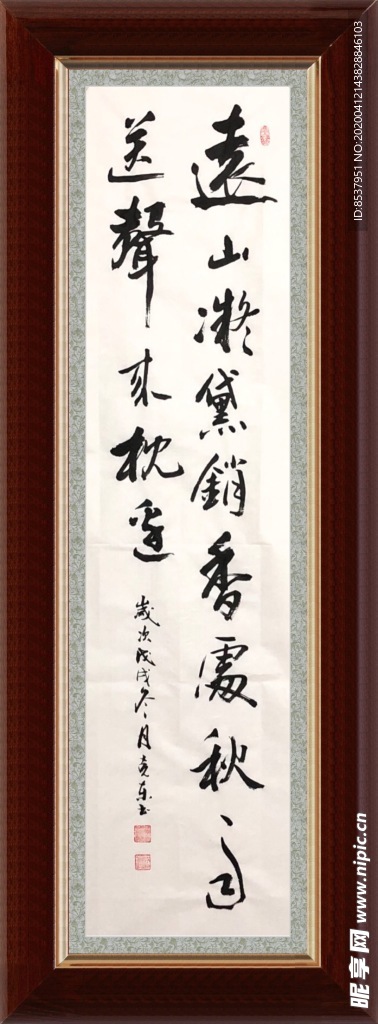 遠山凝黛銷香處秋雨
送聲來枕邊
歲次戊戌冬月克东书
ID:8537951 NO:20200412143828846103
昵享网 www.nipic.cn